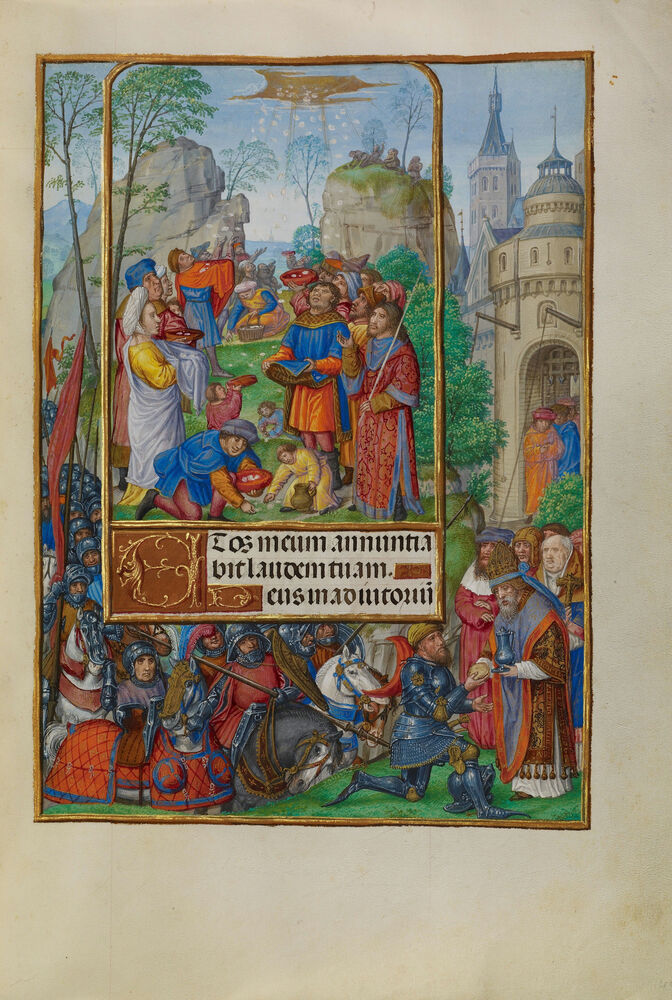 ET os meum annuntia
bit laudem tuam.
Deus in adiutoriū